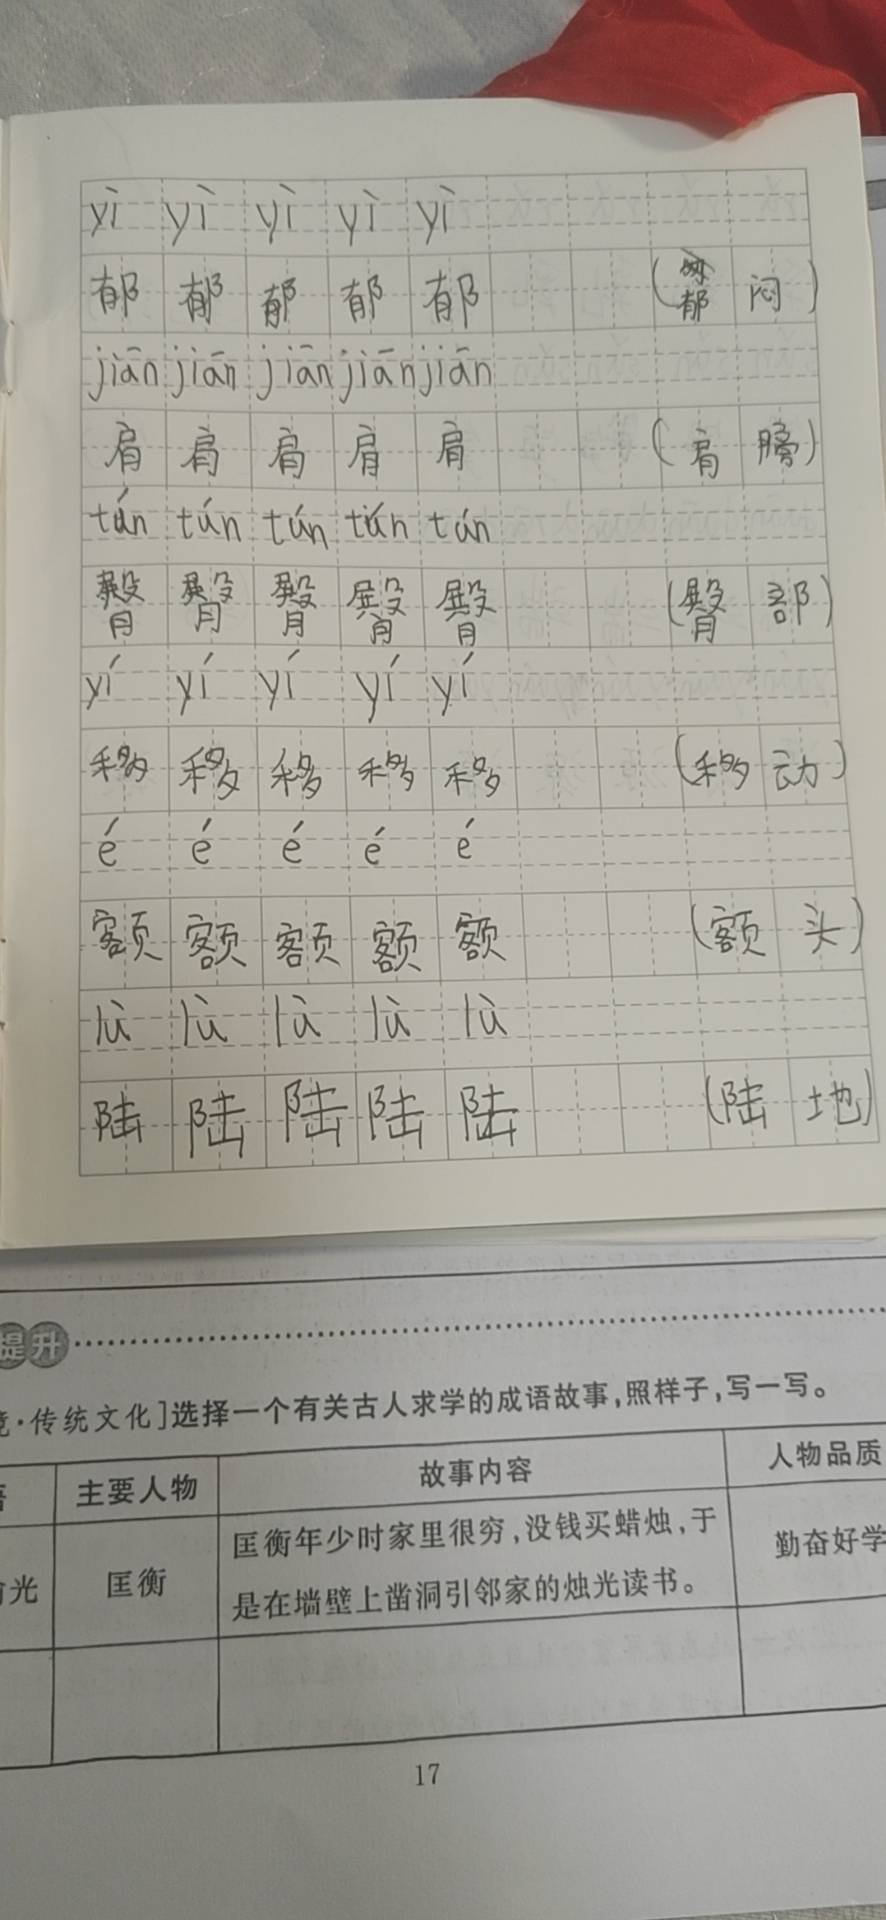 yì yì yì yì yì
郁 郁 郁 郁 郁 (郁 闷)
jiān jiān jiān jiān jiān
肩 肩 肩 肩 肩 (肩 膀)
tún tún tún tún tún
臀 臀 臀 臀 臀 (臀 部)
yí yí yí yí yí
移 移 移 移 移 (移 动)
é é é é é
额 额 额 额 额 (额 头)
lù lù lù lù lù
陆 陆 陆 陆 陆 (陆 地)
提升
·传统文化]选择一个有关古人求学的成语故事,照样子,写一写。
主要人物 故事内容 人物品质
光 匡衡 匡衡年少时家里很穷,没钱买蜡烛,于 勤奋好学
是在墙壁上凿洞引邻家的烛光读书。
17